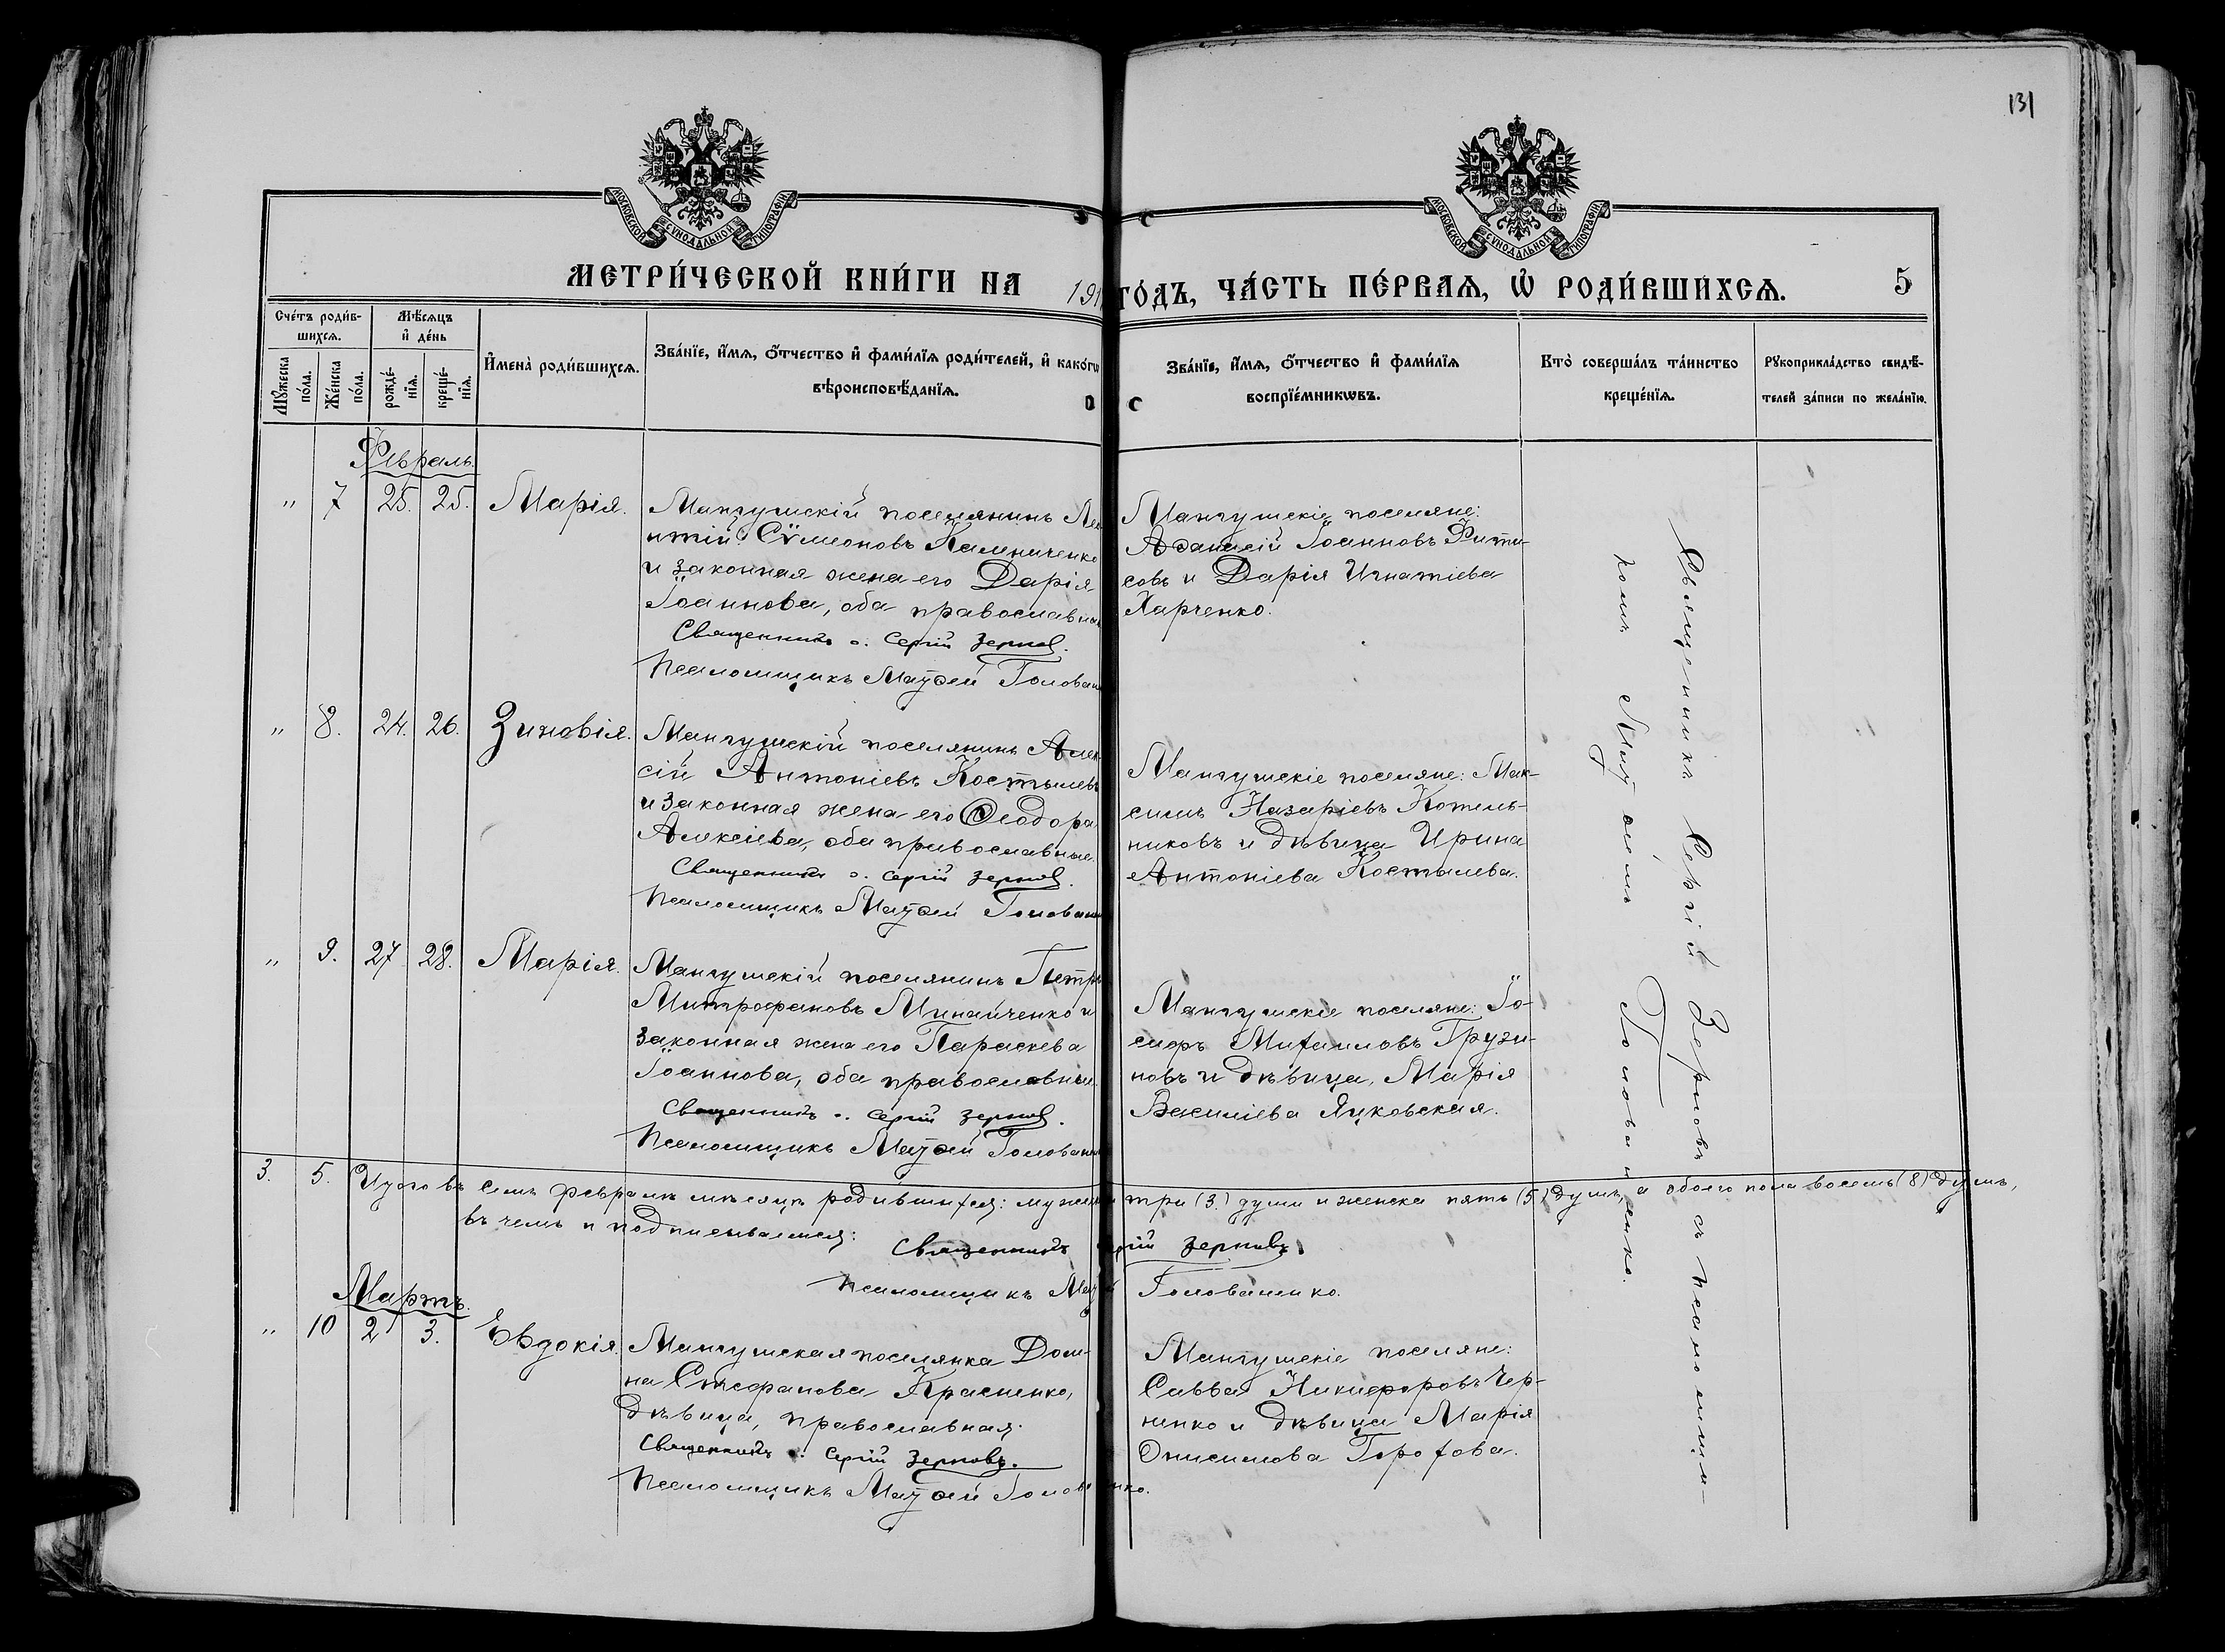 131
МОСКОВСКОЙ СѴНОДАЛЬНОЙ ТИПОГРАФІИ
МОСКОВСКОЙ СѴНОДАЛЬНОЙ ТИПОГРАФІИ
МЕТРИ́ЧЕСКОЙ КНИ́ГИ НА 191
ГО́ДЪ, ЧА́СТЬ ПЕ́РВАЯ, Ѡ҆ РОДИ́ВШИХСЯ.
5
Сче́тъ роди́в-
шихся.
Мꙋ́жеска по́ла.
Же́нска по́ла.
Мѣ́сяцъ
и҆ де́нь
рожде́-
нїя.
креще́-
нїя.
И҆мена̀ роди́вшихся.
Зва́нїе, и҆́мя, ѻ҆́тчество и҆ фами́лїя роди́телей, и҆ како́гѡ
вѣроисповѣ́данїя.
Зва́нїе, и҆́мя, ѻ҆́тчество и҆ фами́лїя
воспрїе́мникѡвъ.
Кто̀ соверша́лъ та́инство
креще́нїя.
Рꙋкоприкла́дство свидѣ́-
телей за́писи по жела́нїю.
Февраль.
" 7 25. 25. Марія.
Мангушскій поселянинъ Лео
нтій Сѵмеоновъ Калниченко
и законная жена его Дарія
Іоаннова, оба православны
Священникъ о. Сергій Зерновъ.
Псаломщикъ Матѳей Голован
Мангушскіе поселяне:
Аѳанасій Іоанновъ Фити-
совъ и Дарія Игнатіева
Харченко.
" 8. 24. 26. Зиновія.
Мангушскій поселянинъ Алек
сій Антоніевъ Костылевъ
и законная жена его Ѳеодора
Алексіева, оба православные.
Священникъ о. Сергій Зерновъ.
Псаломщикъ Матѳей Голован
Мангушскіе поселяне: Мак-
симъ Назаріевъ Котель-
никовъ и дѣвица Ирина
Антоніева Костылева.
" 9. 27 28. Марія.
Мангушскій поселянинъ Петръ
Митрофановъ Минайченко и
законная жена его Параскева
Іоаннова, оба православные.
Священникъ о. Сергій Зерновъ.
Псаломщикъ Матѳей Голован
Мангушскіе поселяне: Іо-
сифъ Михаиловъ Грузи-
новъ и дѣвица, Марія
Василіева Яцковская.
3. 5. Итого въ семъ февралѣ мѣсяцѣ родившихся: мужска три (3.) души и женска пять (5) душъ, а обоего пола восемь (8) душъ,
въ чемъ и подписываемся:
Священникъ Сергій Зерновъ.
Псаломщикъ Матѳей Голованенко.
Мартъ.
" 10 2 3. Евдокія.
Мангушская поселянка Дом-
на Стефанова Красненко,
дѣвица, православная.
Священникъ о. Сергій Зерновъ.
Псаломщикъ Матѳей Голованенко.
Мангушскіе поселяне:
Савва Никифоровъ Чер-
ненко и дѣвица Марія
Онисимова Горохова.
Священникъ Сергій Зерновъ съ псаломщи-
комъ Матѳеемъ Голованенко.